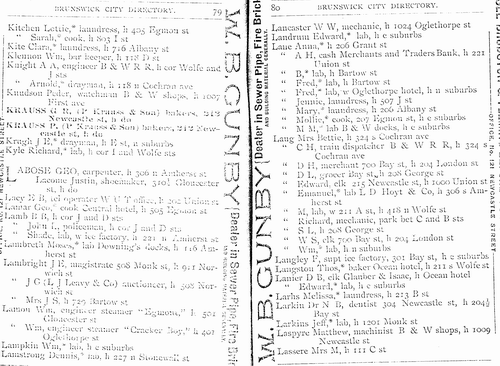 BRUNSWICK CITY DIRECTORY. 79
Kitchen Lottie,* laundress, h 405 Egmont st
" Sarah,* cook, h 803 I st
Kite Clara,* laundress, h 716 Albany st
Klemon Wm, bar keeper, h 118 D st
Knight A A, engineer B & W R R, h cor Wolfe and
J sts
" Arnold,* drayman, h 118 n Cochran ave
Knudson Peder, watchman B & W shops, h 1007
First ave
KRAUSS G R, (P Krauss & Son) baker, 212
Newcastle st, h do
KRAUSS P, (P Krauss & Son) bakers, 212 New-
castle st, h do
Krugh J E,* drayman, h E st, n suburbs
Kyle Richard,* lab, h cor I and Wolfe sts
LABOSE GEO, carpenter, h 306 n Amherst st
Lacone Justin, shoemaker, 310½ Gloucester
st, h do
Lacy E B, tel operator W U T office, h 202 Union st
Lamar Geo,* cook Central hotel, h 505 Egmont st
Lamb B B, h cor J and D sts
" John I, policeman, h cor J and D sts
" Shade, lab, w ice factory, h 221 n Amherst st
Lambreth Moses,* lab Downing's docks, h 116 Am-
herst st
Lambright J E, magistrate 508 Monk st, h 921 Nor-
wich st
" J G (L J Leavy & Co) auctioneer, h 508 Nor-
wich st
" Mrs J S, h 729 Bartow st
Lamon Wm, engineer steamer "Egmont," h 501
Gloucester st
" Wm, engineer steamer "Cracker Boy," h 401
Oglethorpe st
Lampkin Wm,* lab, h e suburbs
Lamstrong Dennis,* lab, h 227 n Stonewall st
W. B. GUNBY, Dealer in Sewer Pipe, Fire Brick
W. B. GUNBY, Dealer in Sewer Pipe, Fire Brick
80 BRUNSWICK CITY DIRECTORY.
Lancaster W W, mechanic, h 1024 Oglethorpe st
Landrum Edward,* lab, h e suburbs
Lane Anna,* h 206 Grant st
" A H, cash Merchants and Traders Bank, h 221
Union st
" B,* lab, h Bartow st
" Fred,* lab, h Bartow st
" Fred,* lab, w Oglethorpe hotel, h n suburbs
" Jennie, laundress, h 507 J st
" Mary,* laundress, h 206 Albany st
" Mollie,* cook, 207 Egmont st, h e suburbs
" M M,* lab B & W docks, h e suburbs
Lang Mrs Bettie, h 324 s Cochran ave
" C H, train dispatcher B & W R R, h 324 s
Cochran ave
" D H, merchant 700 Bay st, h 204 London st
" D L, grocer Bay st, h 208 George st
" Edward, elk 215 Newcastle st, h 1000 Union st
" Emanuel,* lab L D Hoyt & Co, h 306 s Am-
herst st
" M, lab, w 211 A st, h 418 n Wolfe st
" Richard, mechanic, park bet C and B sts
" S L, h 208 George st
" W S, clk 700 Bay st, h 204 London st
" Wm,* lab, h n suburbs
Langley F, supt ice factory, 301 Bay st, h e suburbs
Langston Thos,* baker Ocean hotel, h 211 s Wolfe st
Lanier D B, clk Glauber & Isaac, h Ocean hotel
" Edward,* lab, h e suburbs
Larhs Melissa,* laundress, h 213 B st
Larkin Dr N B, dentist 304 Newcastle st, h 204½
Bay st
Larkins Jeff,* lab, h 1201 Monk st
Laspyre Matthew, machinist B & W shops, h 1009
Newcastle st
Lassere Mrs M, h 111 C st
OFFICE, No. 121 NEWCASTLE STREET